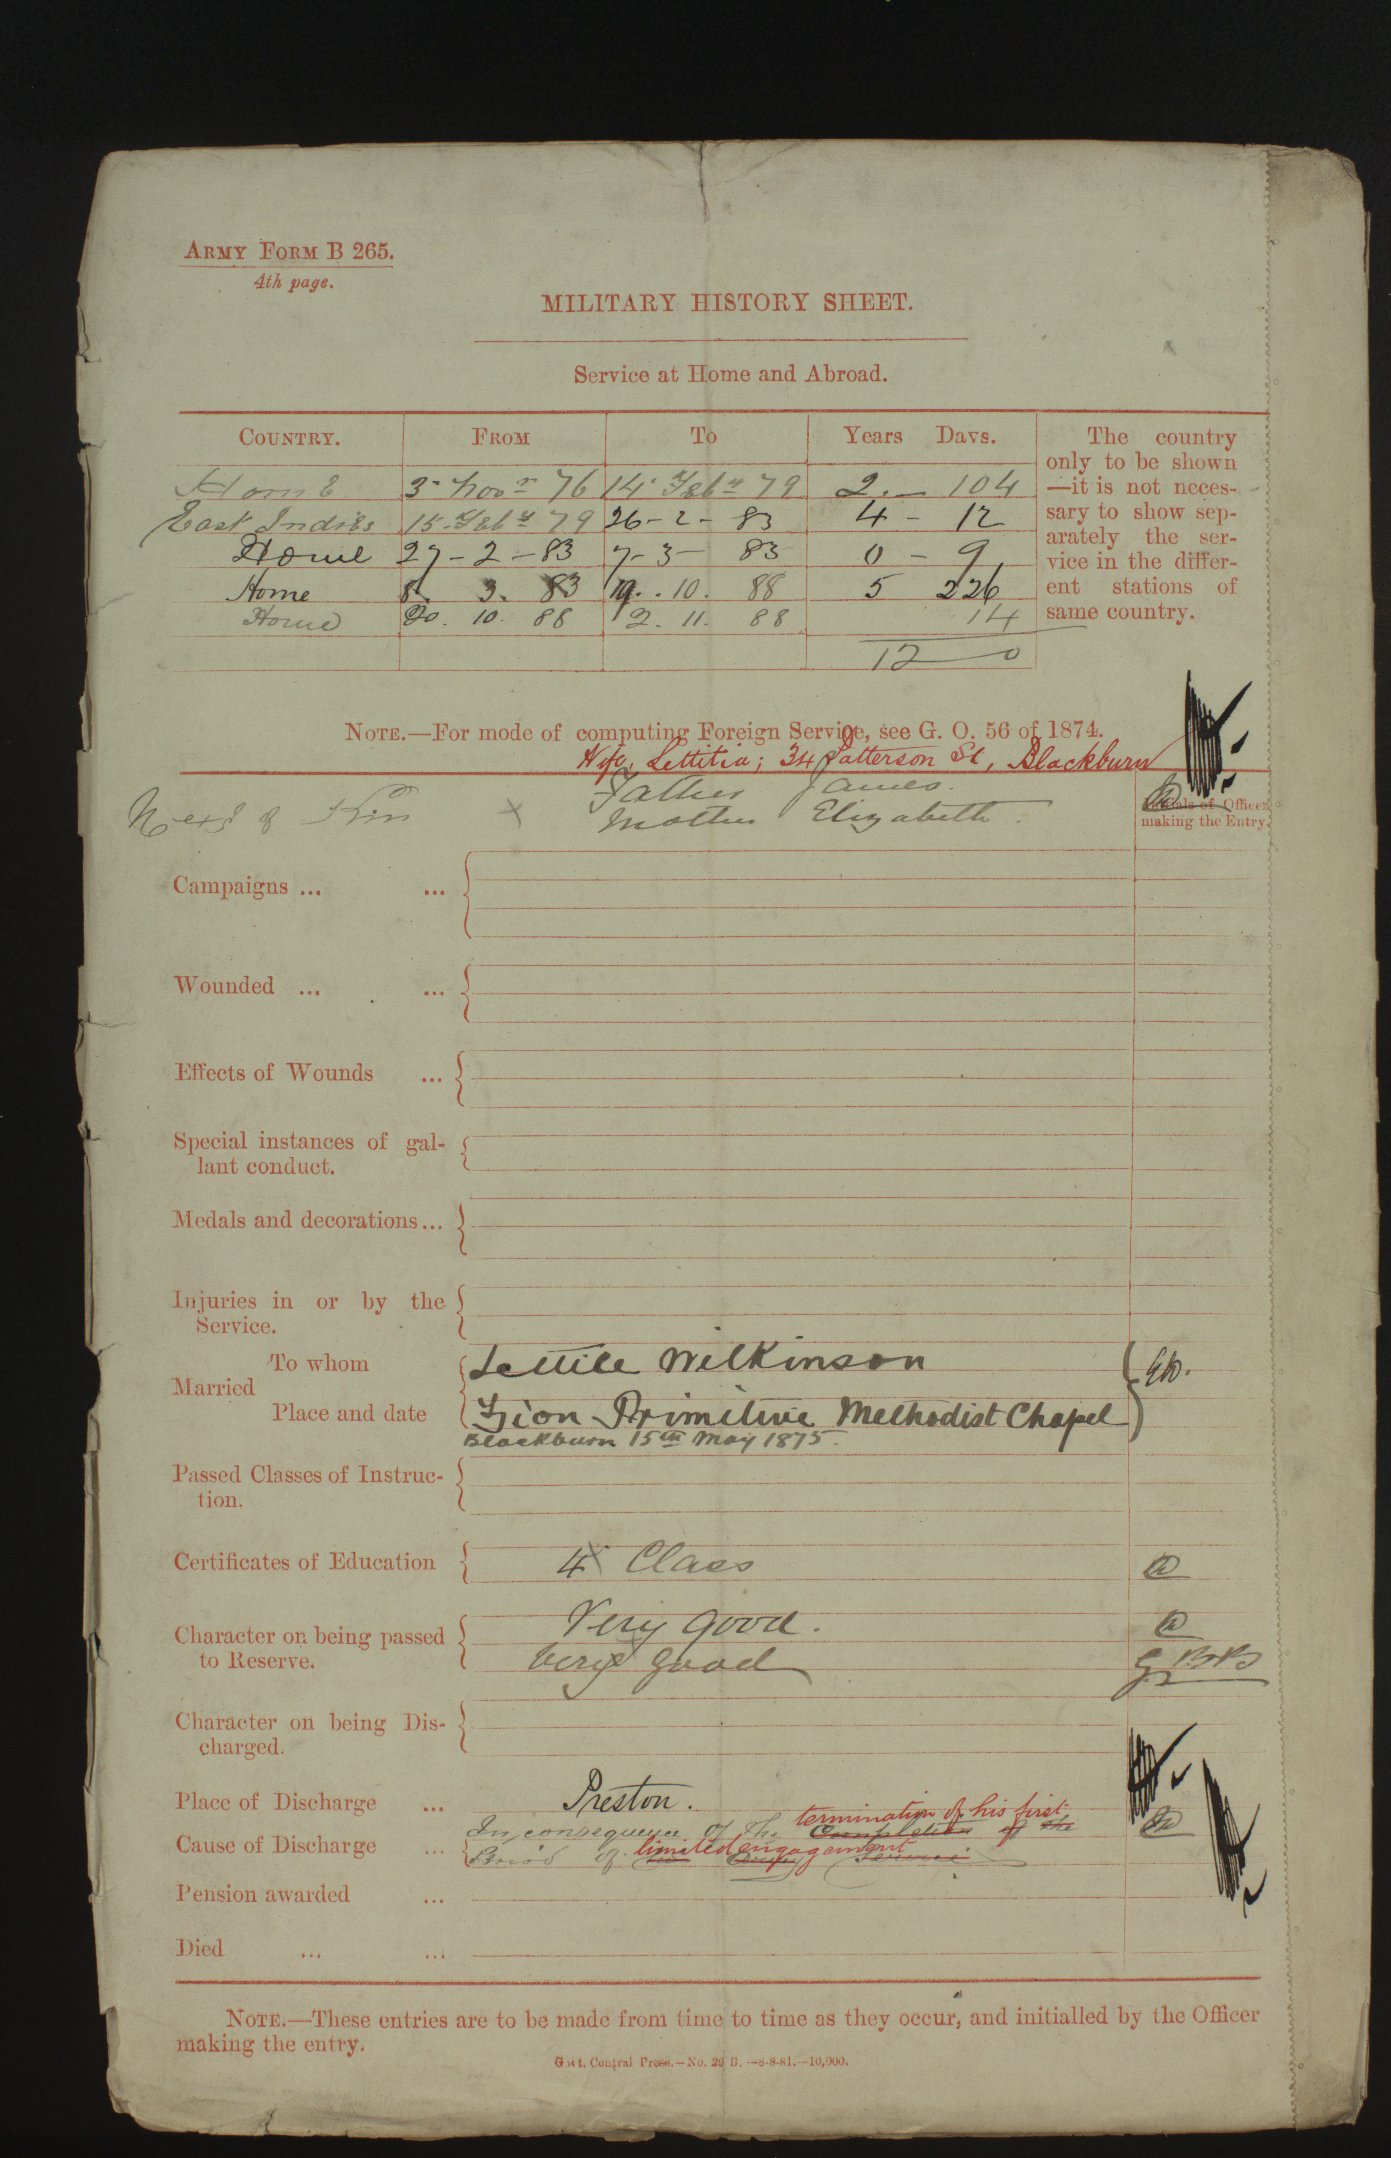 ARMY FORM B 265.
4th page.
MILITARY HISTORY SHEET.
Service at Home and Abroad.
COUNTRY. FROM To Years Days.
Home 3 Novr 76 14 Feby 79 2 - 104
East Indies 15 Feby 79 26-2-83 4 - 12
Home 27-2-83 7-3-83 0 - 9
Home 8. 3. 83 19. 10. 88 5 226
Home 20. 10. 88 2. 11. 88 14
12 0
The country
only to be shown
—it is not neces-
sary to show sep-
arately the ser-
vice in the differ-
ent stations of
same country.
NOTE.—For mode of computing Foreign Service, see G. O. 56 of 1874.
Wife, Lettitia; 34 Patterson St, Blackburn
Next of Kin Father James.
Mother Elizabeth.
Initials of Officer
making the Entry.
Campaigns ... ...
Wounded ... ...
Effects of Wounds ...
Special instances of gal-
lant conduct.
Medals and decorations...
Injuries in or by the
Service.
To whom Lettice Wilkinson
Married
Place and date Zion Primitive Methodist Chapel
Blackburn 15th May 1875.
Passed Classes of Instruc-
tion.
Certificates of Education 4 Class
Character on being passed Very good.
to Reserve. Very good
Character on being Dis-
charged.
Place of Discharge ... Preston.
termination of his first
In consequence of the Completion of the
Cause of Discharge ... limited engagement
Period of service
Pension awarded ...
Died ... ...
NOTE.—These entries are to be made from time to time as they occur, and initialled by the Officer
making the entry.
Govt. Central Press.—No. 20 B.—8-8-81.—10,000.